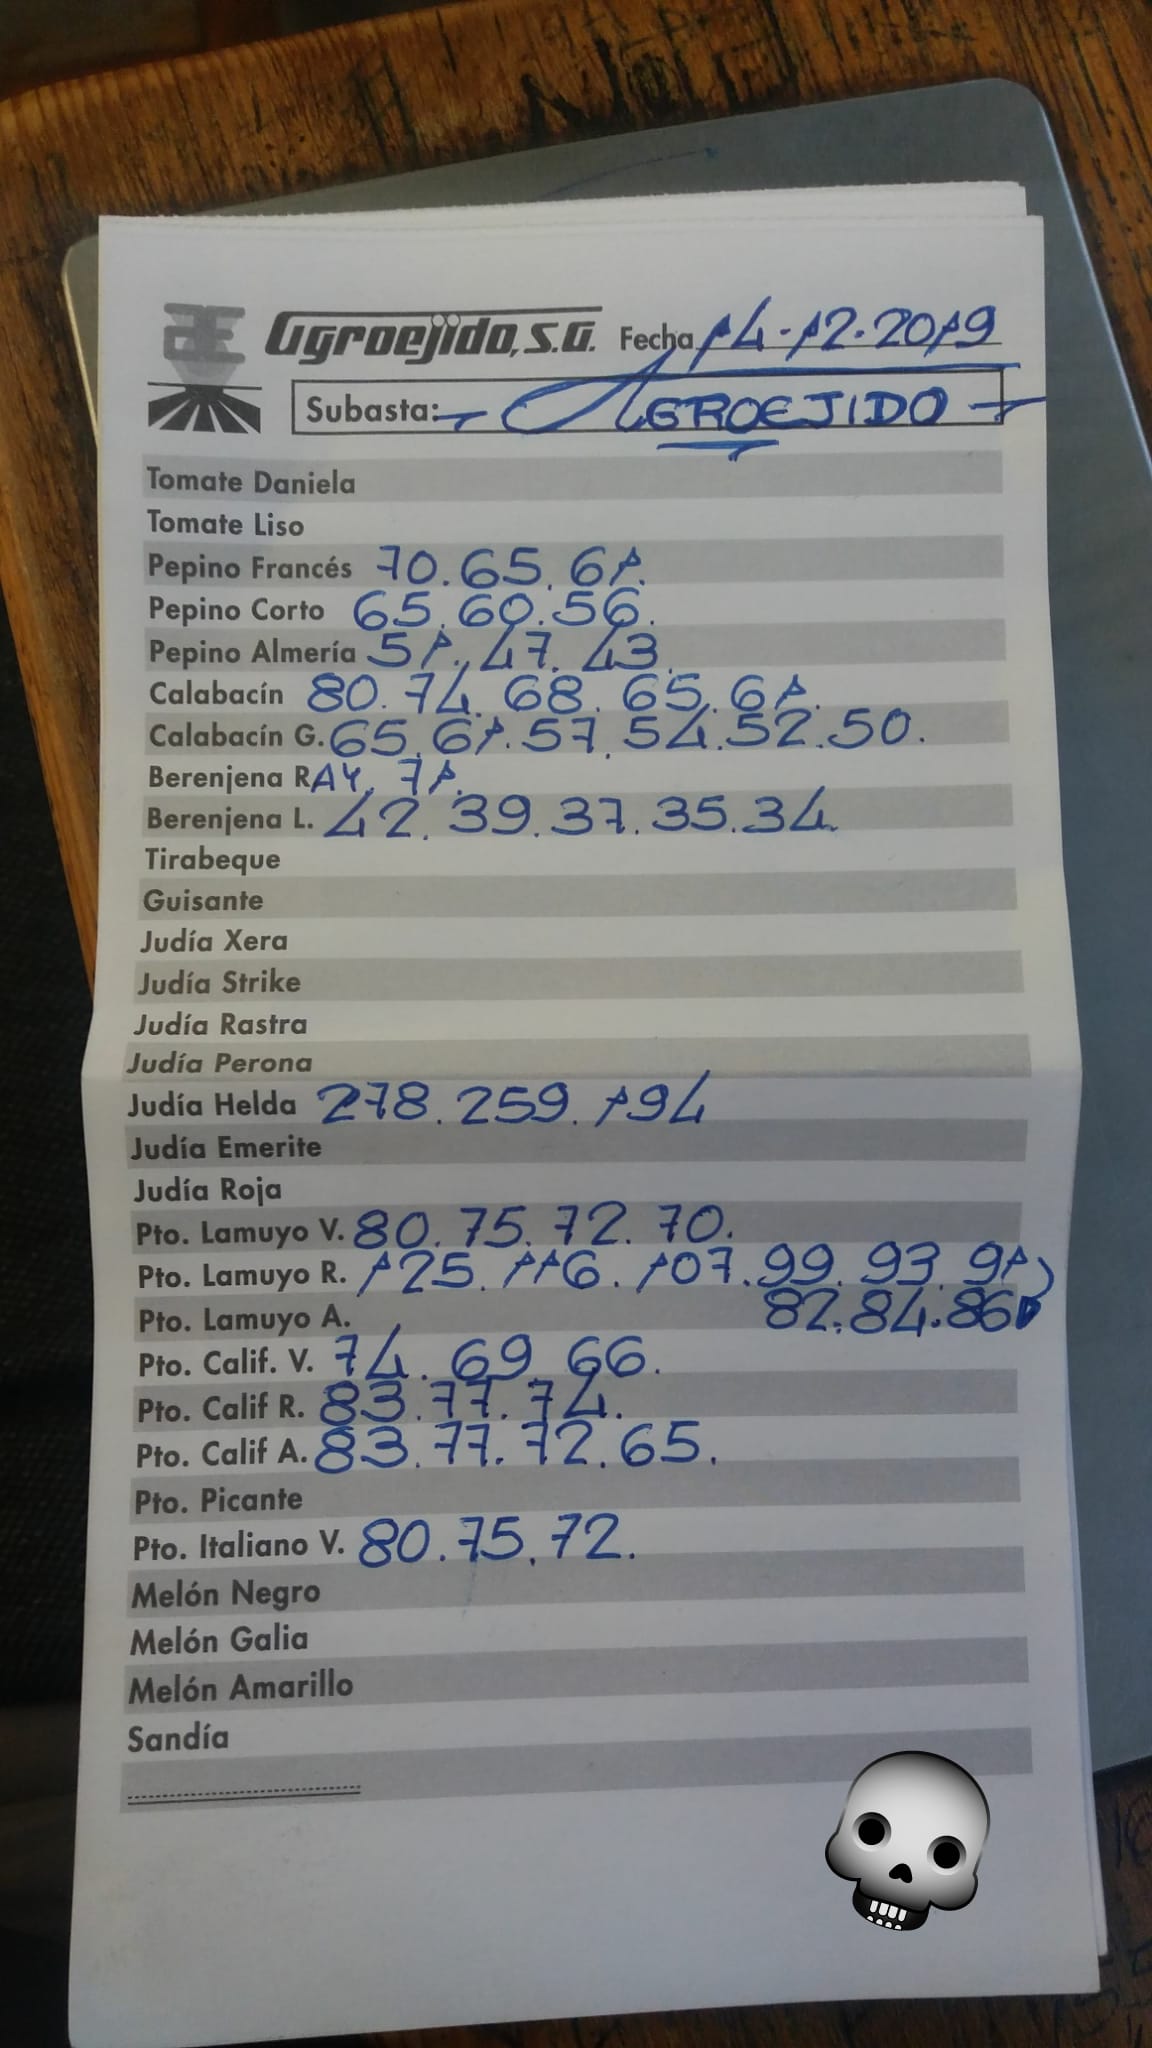 Agroejido, S.A. Fecha 14-12-2019
Subasta: AGROEJIDO
Tomate Daniela
Tomate Liso
Pepino Francés 70.65.61.
Pepino Corto 65.60.56.
Pepino Almería 51.47.43.
Calabacín 80.74.68.65.61.
Calabacín G. 65.61.57.54.52.50.
Berenjena RAY. 71.
Berenjena L. 42.39.37.35.34.
Tirabeque
Guisante
Judía Xera
Judía Strike
Judía Rastra
Judía Perona
Judía Helda 278.259.194
Judía Emerite
Judía Roja
Pto. Lamuyo V. 80.75.72.70.
Pto. Lamuyo R. 125.116.107.99.93.91
82.84.86
Pto. Lamuyo A.
Pto. Calif. V. 74.69.66.
Pto. Calif R. 83.77.74.
Pto. Calif A. 83.77.72.65.
Pto. Picante
Pto. Italiano V. 80.75.72.
Melón Negro
Melón Galia
Melón Amarillo
Sandía